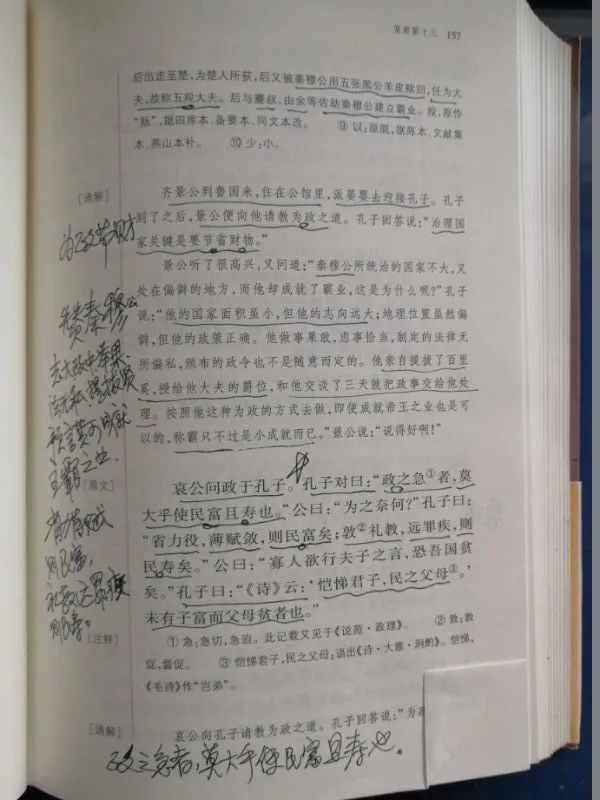 贤君第十三 157
后出走至楚，为楚人所获，后又被秦穆公用五张黑公羊皮赎回，任为大
夫，故称五羖大夫。后与蹇叔、由余等佐助秦穆公建立霸业。羖，原作
“叛”，据四库本、备要本、同文本改。 ⑨以：原脱，据陈本、文献集
本、燕山本补。 ⑩少：小。
[通解]
齐景公到鲁国来，住在公馆里，派晏婴去迎接孔子。孔子
到了之后，景公便向他请教为政之道。孔子回答说：“治理国
家关键是要节省财物。”
为政节财
景公听了很高兴，又问道：“秦穆公所统治的国家不大，又
处在偏僻的地方，而他却成就了霸业，这是为什么呢？”孔子
说：“他的国家面积虽小，但他的志向远大；地理位置虽然偏
僻，但他的政策正确。他做事果敢，虑事恰当，制定的法律无
所偏私，颁布的政令也不是随意而定的。他亲自提拔了百里
奚，授给他大夫的爵位，和他交谈了三天就把政事交给他处
理。按照他这种为政的方式去做，即使成就帝王之业也是可
以的，称霸只不过是小成就而已。”景公说：“说得好啊！”
赞秦穆公
[原文]
哀公问政于孔子。孔子对曰：“政之急①者，莫
大乎使民富且寿也。”公曰：“为之奈何？”孔子曰：
“省力役，薄赋敛，则民富矣；敦②礼教，远罪疾，则
民寿矣。”公曰：“寡人欲行夫子之言，恐吾国贫
矣。”孔子曰：“《诗》云：‘恺悌君子，民之父母③。’
未有子富而父母贫者也。”
则民富，
礼教远罪疾
则民寿。
[注释]
①急：急切，急迫。此记载又见于《说苑·政理》。 ②敦：敦
促，督促。 ③恺悌君子，民之父母：语出《诗·大雅·泂酌》。恺悌，
《毛诗》作“岂弟”。
[通解]
哀公向孔子请教为政之道。孔子回答说：“为
政之急者，莫大乎使民富且寿也。